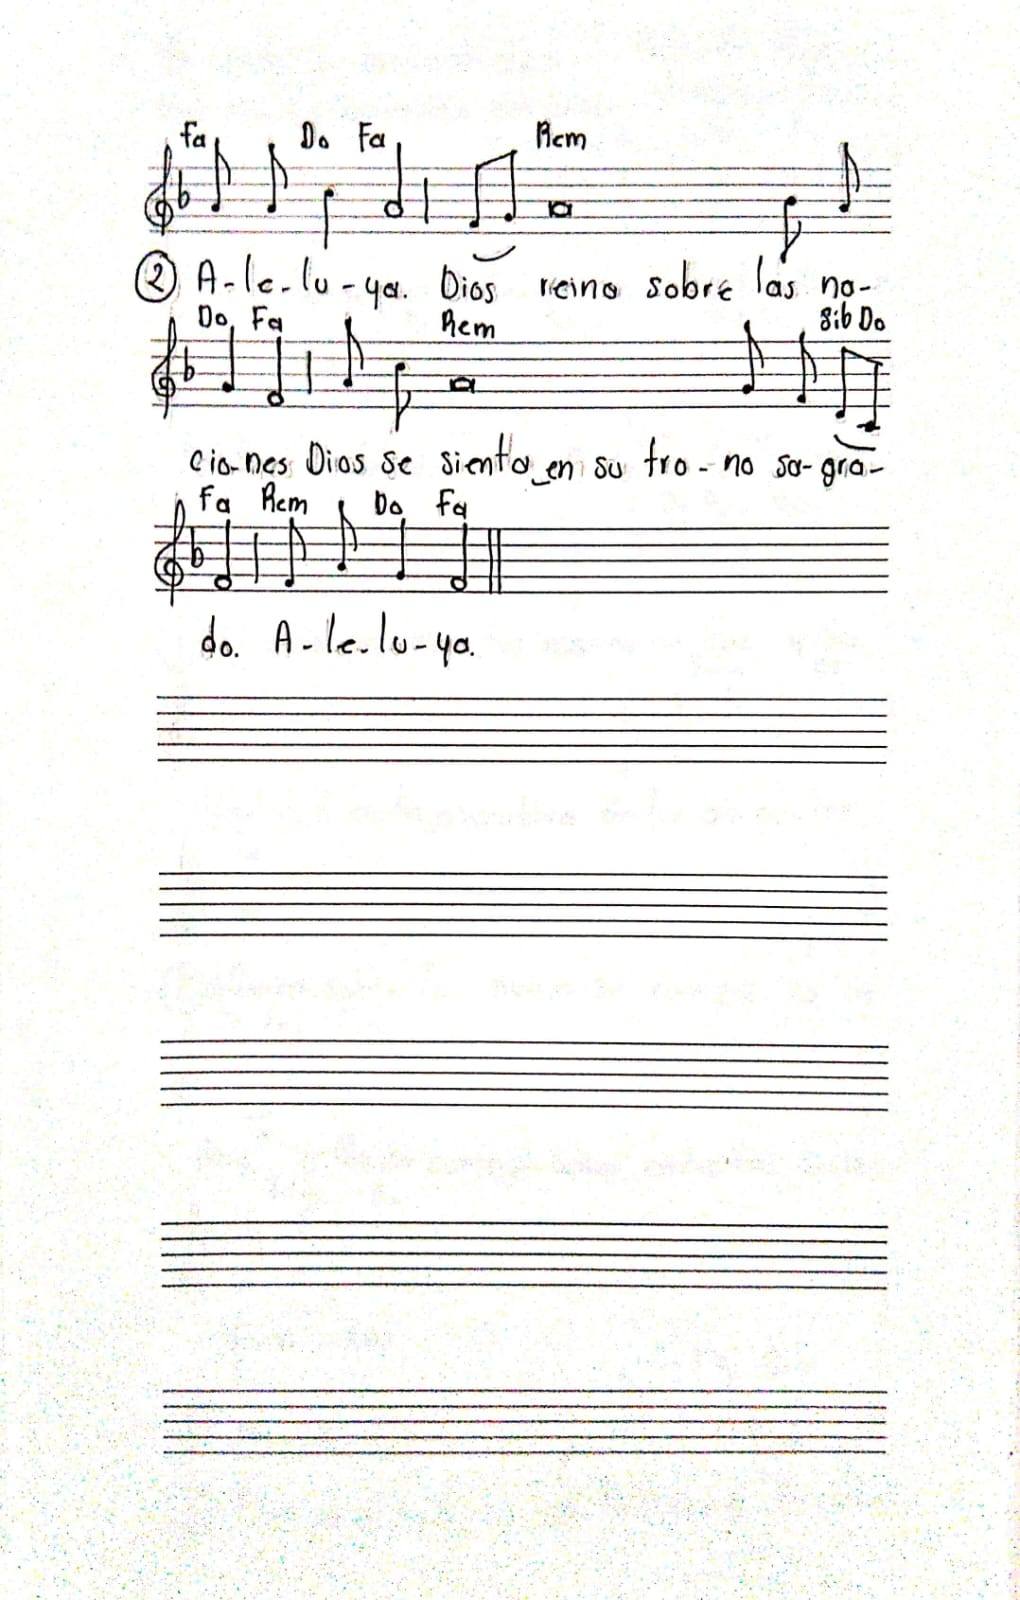 Fa Do Fa Rem
② A-le-lu-ya. Dios reina sobre las na-
Do Fa Rem Sib Do
cio-nes Dios se sienta en su tro-no sa-gra-
Fa Rem Do Fa
do. A-le-lu-ya.